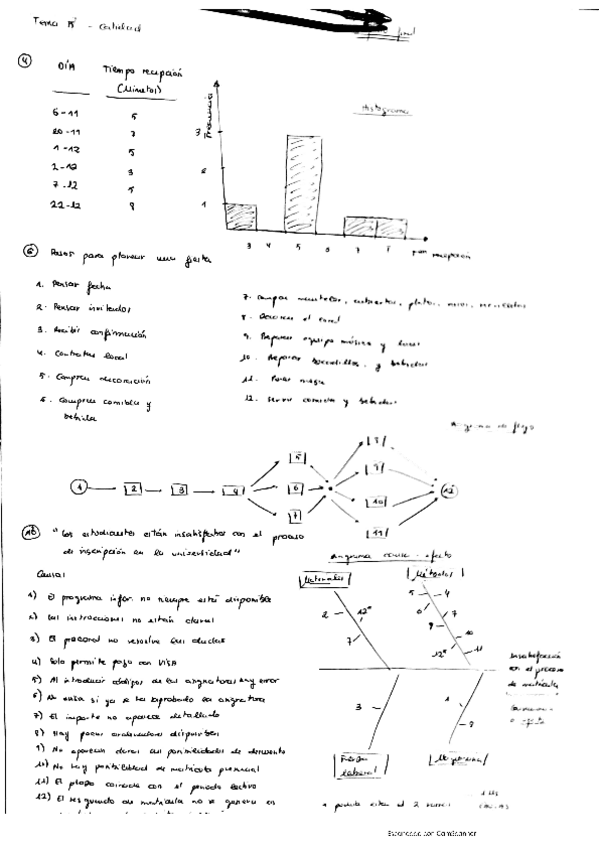 Tema 15 - Calidad
final
4
DÍA
Tiempo recepción
(Minutos)
6-11 5
20-11 7
1-12 5
2-12 3
7-12 5
22-12 8
Histograma
Frecuencia
3
2
1
3 4 5 6 7 8
recepción
6 Pasos para planear una fiesta
1. Pensar fecha
2. Pensar invitados
3. Recibir confirmación
4. Contratar local
5. Comprar decoración
6. Comprar comida y
bebida
7. Comprar manteles, cubiertos, platos, vasos,
8. Decorar el local
9. Preparar equipo música y luces
10. Preparar bocadillos y bebidas
11. Poner música
12. Servir comida y bebidas
Diagrama de flujo
1 2 3 4 5 6 7 8 9 10 11 12
"Los estudiantes están insatisfechos con el proceso
de inscripción en la universidad"
Causas
1) El programa infor. no siempre está disponible
2) Las instrucciones no están claras
3) El personal no resuelve las dudas
4) Solo permite pago con VISA
5) Al introducir códigos de las asignaturas hay error
6) No avisa si ya se ha aprobado la asignatura
7) El importe no aparece detallado
8) Hay pocos ordenadores disponibles
9) No aparecen claras las posibilidades de descuento
10) No hay posibilidad de matrícula presencial
11) El plazo coincide con el periodo lectivo
12) El resguardo de matrícula no se genera en
Diagrama causa-efecto
Materiales
Métodos
2 12*
7
5 4
6 7
9 10
12* 11
Insatisfacción
con el proceso
de matrícula
3
1
8
laboral
Maquinaria
* podría estar en 2
Escaneado con CamScanner